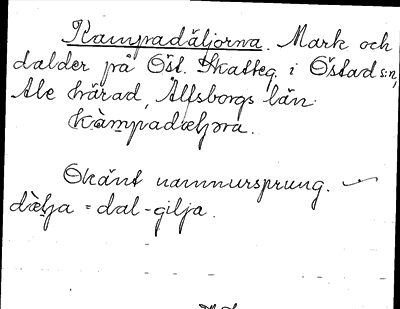 Kampadäljorna. Mark och
dalder på Öst. Skatteg. i Östad s:n,
Ale härad, Älfsborgs län.
Kàmpadæljɔra.
Okänt namnursprung.
dæ̀lja = dal-gilja.